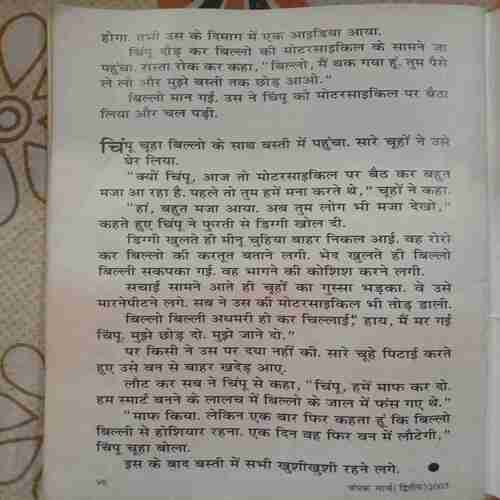 होगा. तभी उस के दिमाग में एक आइडिया आया.
चिंपू दौड़ कर बिल्लो की मोटरसाइकिल के सामने जा
पहुंचा. रास्ता रोक कर कहा, "बिल्लो, मैं थक गया हूं. तुम पैसे
ले लो और मुझे बस्ती तक छोड़ आओ."
बिल्लो मान गई. उस ने चिंपू को मोटरसाइकिल पर बैठा
लिया और चल पड़ी.
चिंपू चूहा बिल्लो के साथ बस्ती में पहुंचा. सारे चूहों ने उसे
घेर लिया.
"क्यों चिंपू, आज तो मोटरसाइकिल पर बैठ कर बहुत
मजा आ रहा है. पहले तो तुम हमें मना करते थे," चूहों ने कहा.
"हां, बहुत मजा आया. अब तुम लोग भी मजा देखो,"
कहते हुए चिंपू ने फुरती से डिग्गी खोल दी.
डिग्गी खुलते ही मीनू चुहिया बाहर निकल आई. वह रोरो
कर बिल्लो की करतूत बताने लगी. भेद खुलते ही बिल्लो
बिल्ली सकपका गई. वह भागने की कोशिश करने लगी.
सचाई सामने आते ही चूहों का गुस्सा भड़का. वे उसे
मारनेपीटने लगे. सब ने उस की मोटरसाइकिल भी तोड़ डाली.
बिल्लो बिल्ली अधमरी हो कर चिल्लाई, "हाय, मैं मर गई
चिंपू. मुझे छोड़ दो. मुझे जाने दो."
पर किसी ने उस पर दया नहीं की. सारे चूहे पिटाई करते
हुए उसे वन से बाहर खदेड़ आए.
लौट कर सब ने चिंपू से कहा, "चिंपू, हमें माफ कर दो.
हम स्मार्ट बनने के लालच में बिल्लो के जाल में फंस गए थे."
"माफ किया. लेकिन एक बार फिर कहता हूं कि बिल्लो
बिल्ली से होशियार रहना. एक दिन वह फिर वन में लौटेगी,"
चिंपू चूहा बोला.
इस के बाद बस्ती में सभी खुशीखुशी रहने लगे.
चंपक मार्च (द्वितीय) 2003